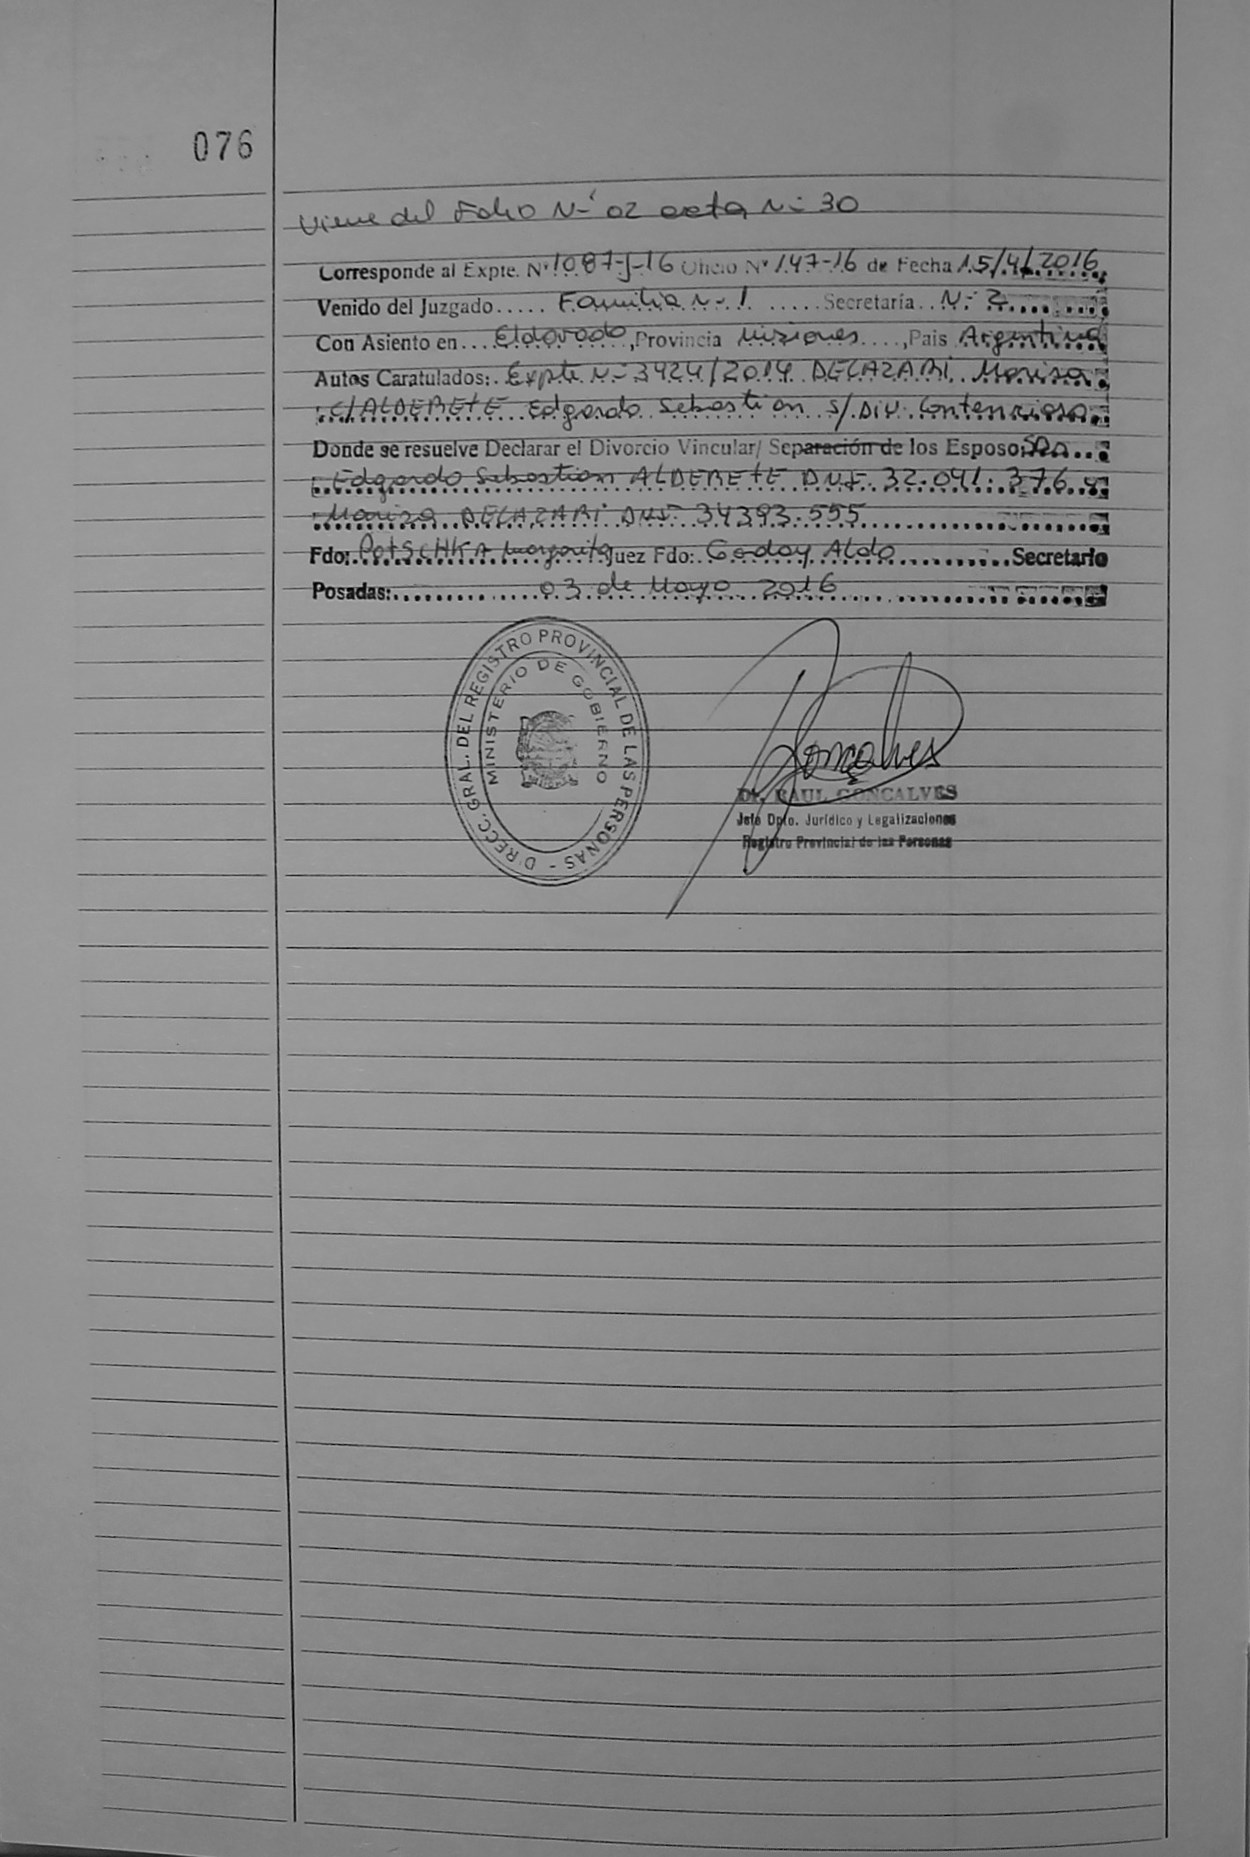 076
Viene del Folio N° 02 acta N° 30
Corresponde al Expte. N° 1087-J-16 Oficio N° 147-16 de Fecha 15/4/2016
Venido del Juzgado..... Familia N° 1 .....Secretaría.. N° 2
Con Asiento en... Eldorado, Provincia Misiones ...., País Argentina
Autos Caratulados: Expte N° 3424/2014 DECAZARI Marisa
C/ALDERETE Edgardo Sebastian S/Div. Contencioso
Donde se resuelve Declarar el Divorcio Vincular/ Separación de los Esposos
Edgardo Sebastian ALDERETE DNI. 32.041.376 y
Marisa DECAZARI DNI. 34393.555
Fdo: POTSCHKA Margarita Juez Fdo: Godoy Aldo ..........Secretario
Posadas: 03 de Mayo 2016
DIRECC. GRAL. DEL REGISTRO PROVINCIAL DE LAS PERSONAS -
MINISTERIO DE GOBIERNO
Gonçalves
Dr. RAUL GONCALVES
Jefe Dpto. Jurídico y Legalizaciones
Registro Provincial de las Personas